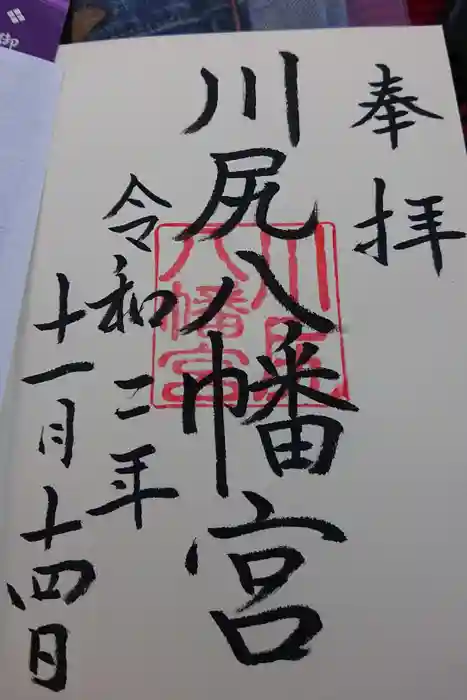 奉拝
川尻八幡宮
川尻八幡宮
令和二年
十一月十四日
御